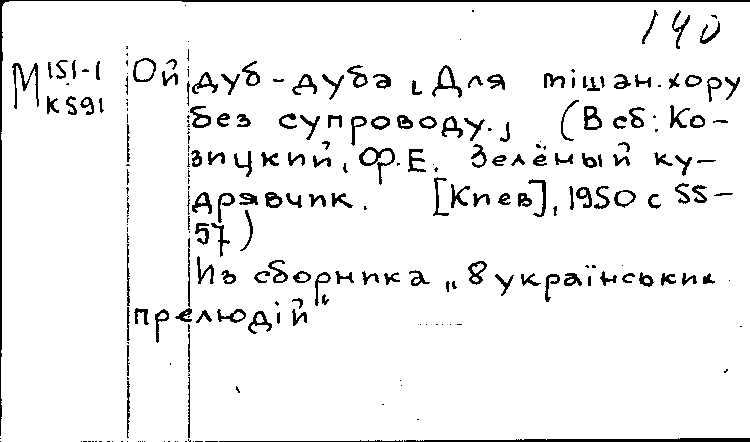 140
М 151-1
К 591
Ой, дуб-дуба [Для мішан. хору
без супроводу.] (В сб: Ко-
зицкий, Ф.Е. Зелёный ку-
дрявчик. [Киев], 1950 с 55-
57)
Из сборника "8 українських
прелюдій"